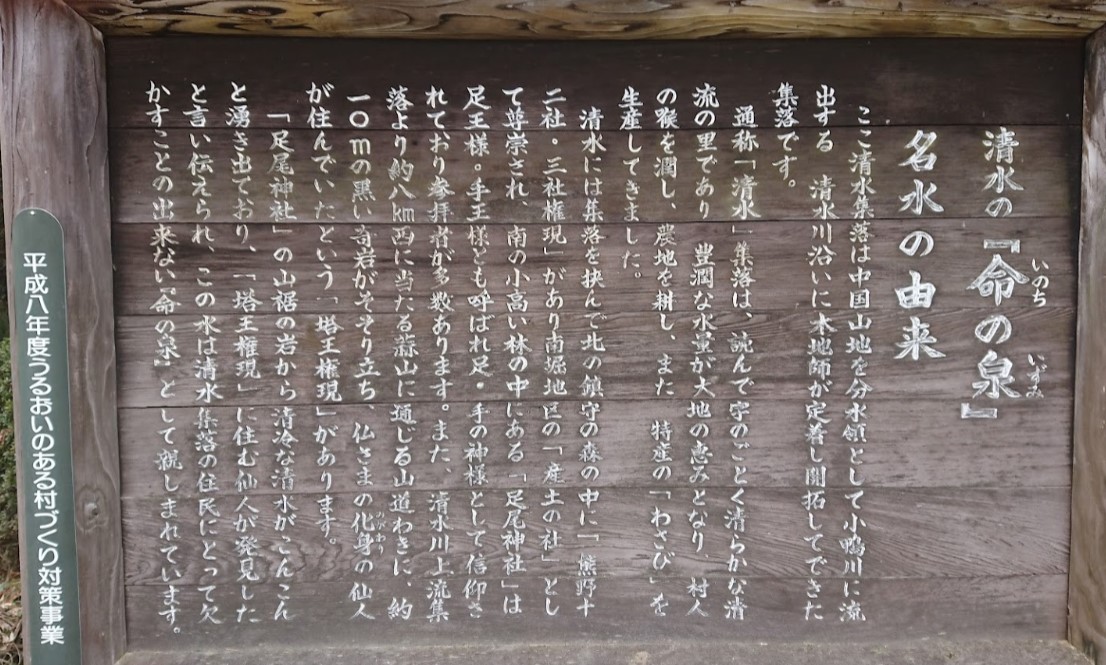 清水の『命の泉』
いのち
いずみ
名水の由来
ここ清水集落は中国山地を分水領として小鴨川に流
出する 清水川沿いに木地師が定着し開拓してできた
集落です。
通称「清水」集落は、読んで字のごとく清らかな清
流の里であり 豊潤な水量が大地の恵みとなり、村人
の喉を潤し、農地を耕し、また 特産の「わさび」を
生産してきました。
清水には集落を挟んで北の鎮守の森の中に「熊野十
二社・三社権現」があり南堀地区の「産土の社」とし
て尊崇され、南の小高い林の中にある「足尾神社」は
足王様。手王様とも呼ばれ足・手の神様として信仰さ
れており参拝者が多数あります。また、清水川上流集
落より約八㎞西に当たる蒜山に通じる山道わきに、約
一〇mの黒い奇岩がそそり立ち、仏さまの化身の仙人
が住んでいたという「塔王権現」があります。
「足尾神社」の山裾の岩から清冷な清水がこんこん
と湧き出ており、「塔王権現」に住む仙人が発見した
と言い伝えられ、この水は清水集落の住民にとって欠
かすことの出来ない『命の泉』として親しまれています。
平成八年度うるおいのある村づくり対策事業